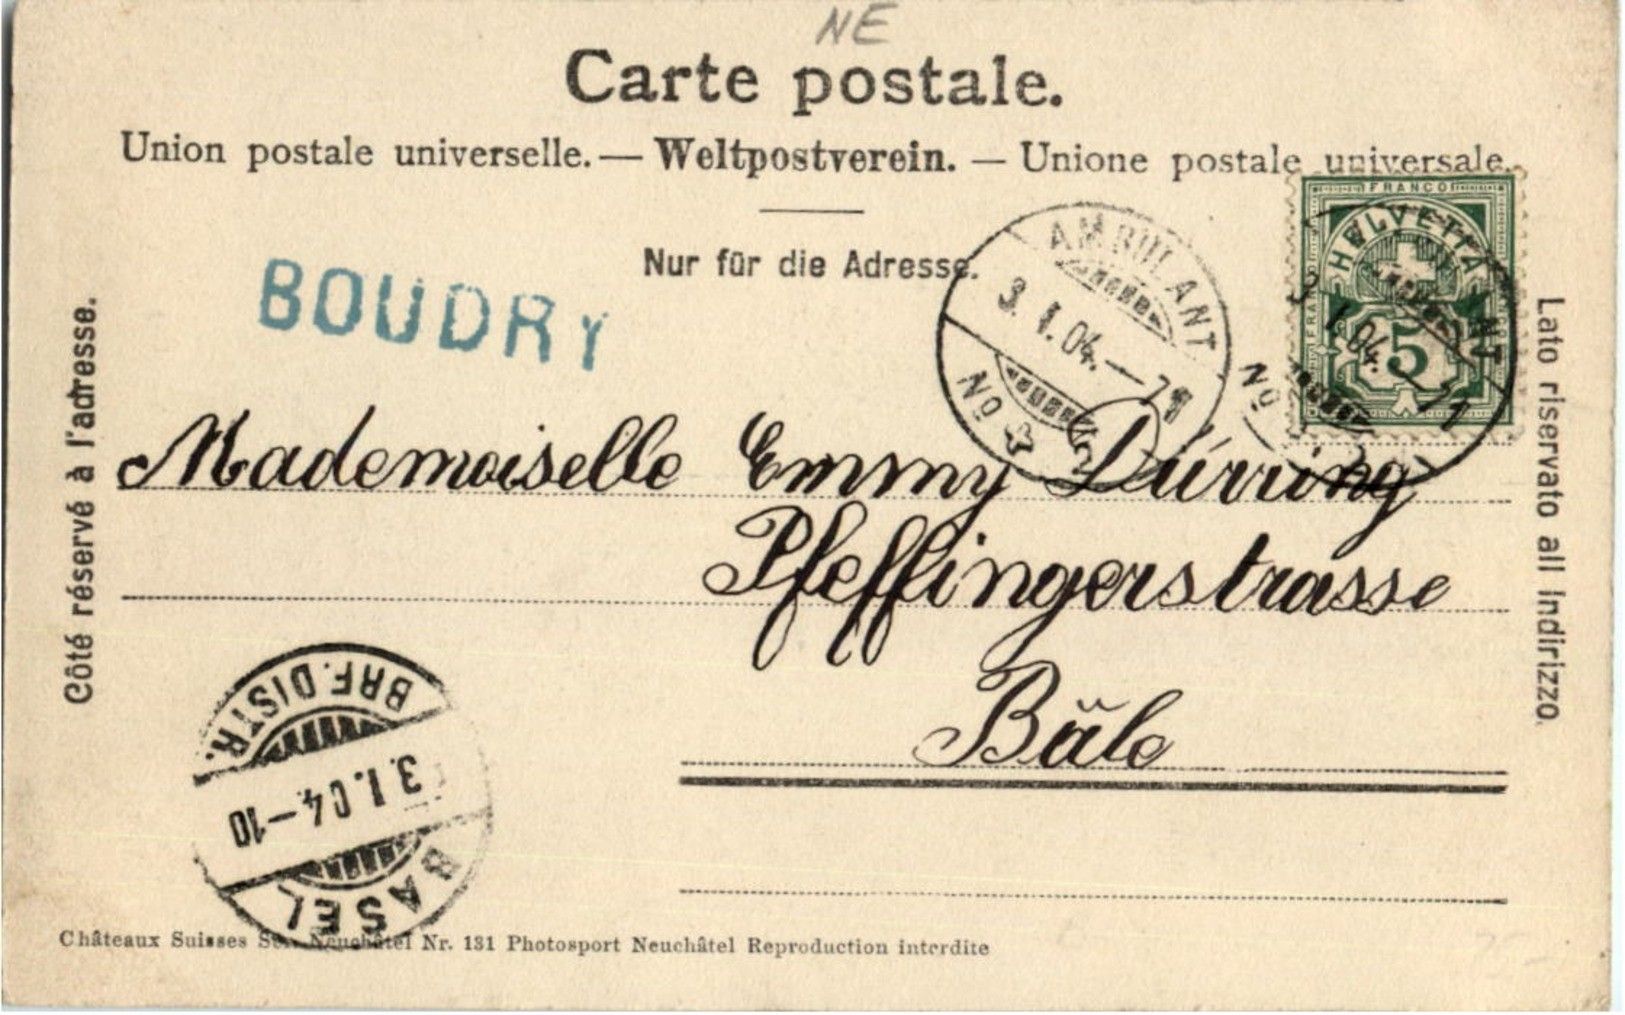 NE
Carte postale.
Union postale universelle. — Weltpostverein. — Unione postale universale.
Nur für die Adresse.
BOUDRY
AMBULANT
3. I. 04. — 11
No
FRANCO
HELVETIA
5
3. I. 04. — 11
No
Côté réservé à l'adresse.
Lato riservato all Indirizzo.
Mademoiselle Emmy Dürring
Pfeffingerstrasse
Bäle
BRF. DISTR.
3. I. 04. — 10
BASEL
Châteaux Suisses Neuchâtel Nr. 131 Photosport Neuchâtel Reproduction interdite